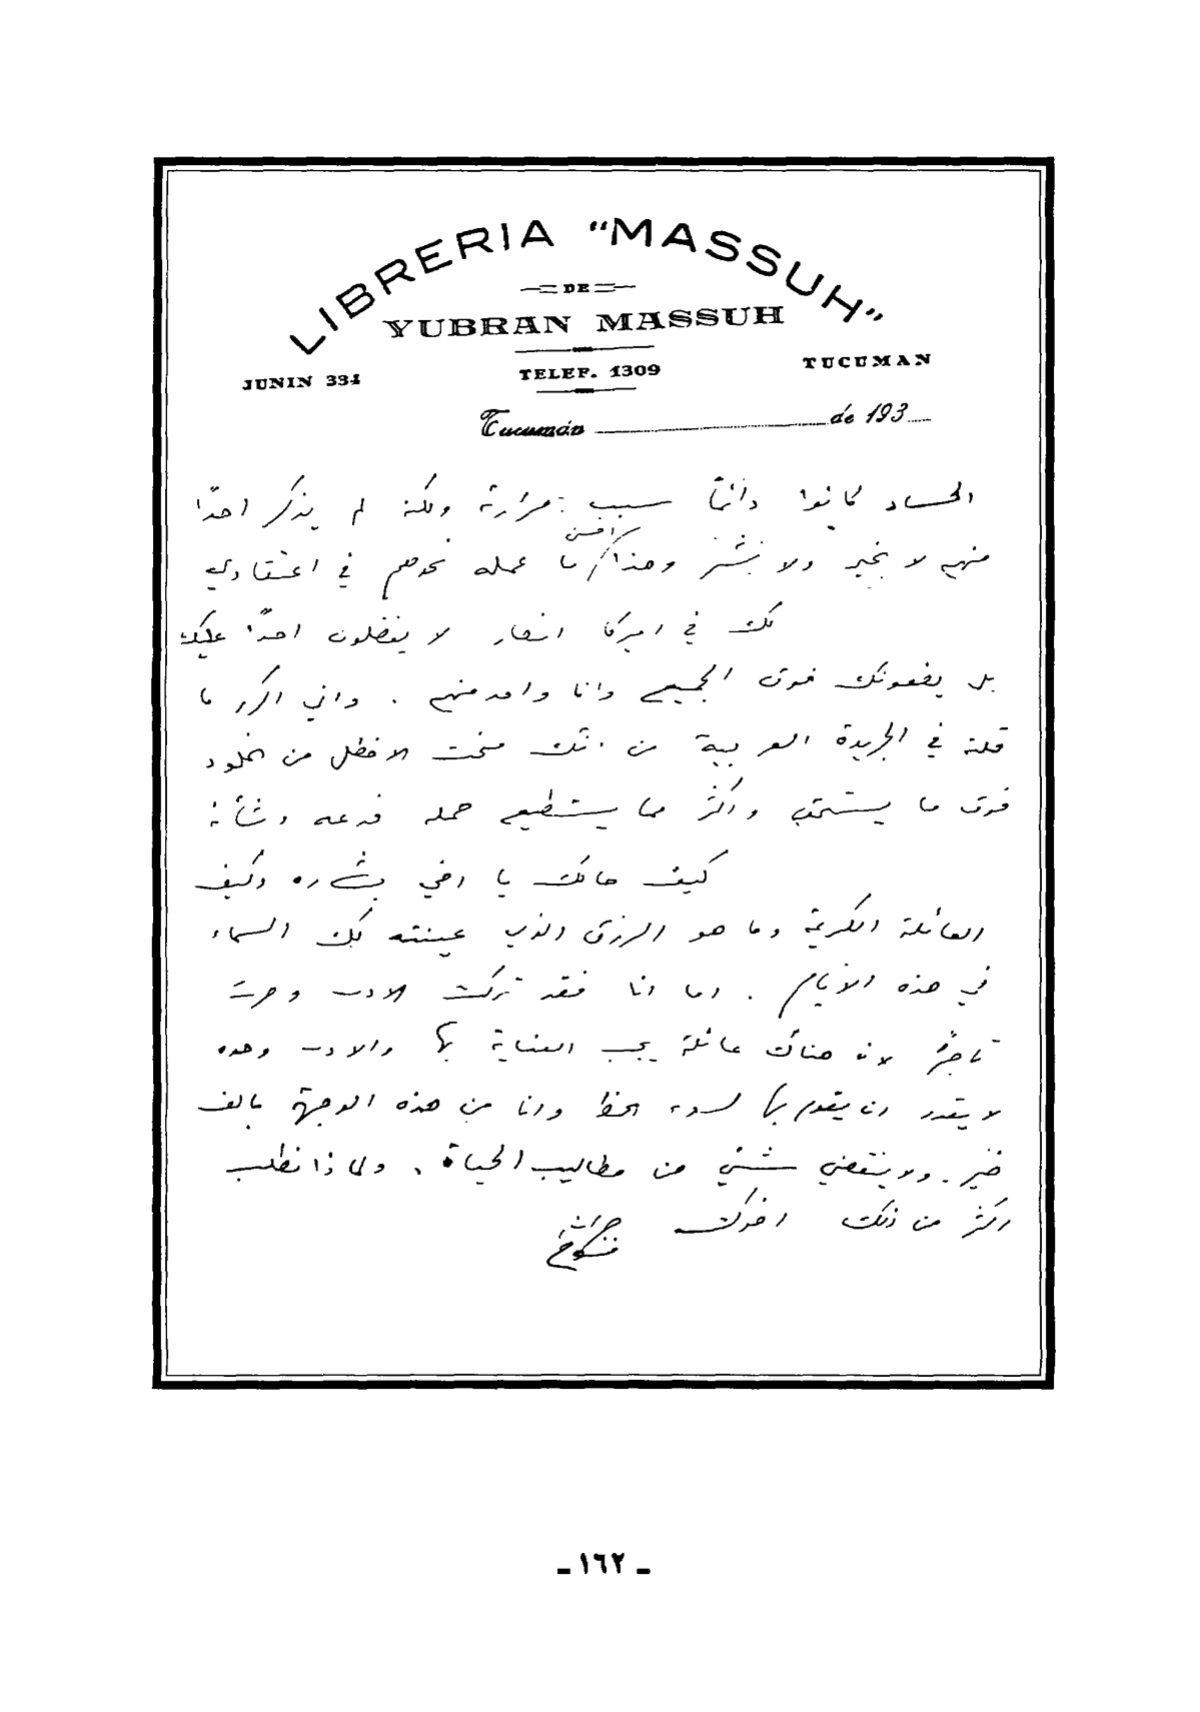 LIBRERIA "MASSUH"
DE
YUBRAN MASSUH
JUNIN 334 TELEF. 1309 TUCUMAN
Tucumán de 193
الحساد كانوا دائمًا سبب مرارته ولكنه لم يذكر احدًا
احسن
منهم لا بخير ولا بشر وهذا ما عمله نحوهم في اعتقادي
لك في اميركا انصار لا يفضلون احدًا عليك
بل يضعونك فوق الجميع وانا واحد منهم . واني اكرر ما
قلته في الجريدة العربية من انك منحت الاخطل من الخلود
فوق ما يستحق واكثر مما يستطيع حمله فرعه وشأنه
كيف حالك يا اخي بشاره وكيف
العائلة الكريمة وما هو الرزق الذي عينته لك السماء
في هذه الأيام . اما انا فقد تركت الادب وصرت
تاجرًا لان هناك عائلة يجب العناية بها والادب وحده
لا يقدر ان يقوم بها لسوء الحظ وانا من هذه الوجهة بالف
خير . ولا ينقصني شيء من مطاليب الحياة . ولماذا نطلب
اكثر من ذلك اخوك جبران
مسوح
ـ ١٦٢ ـ